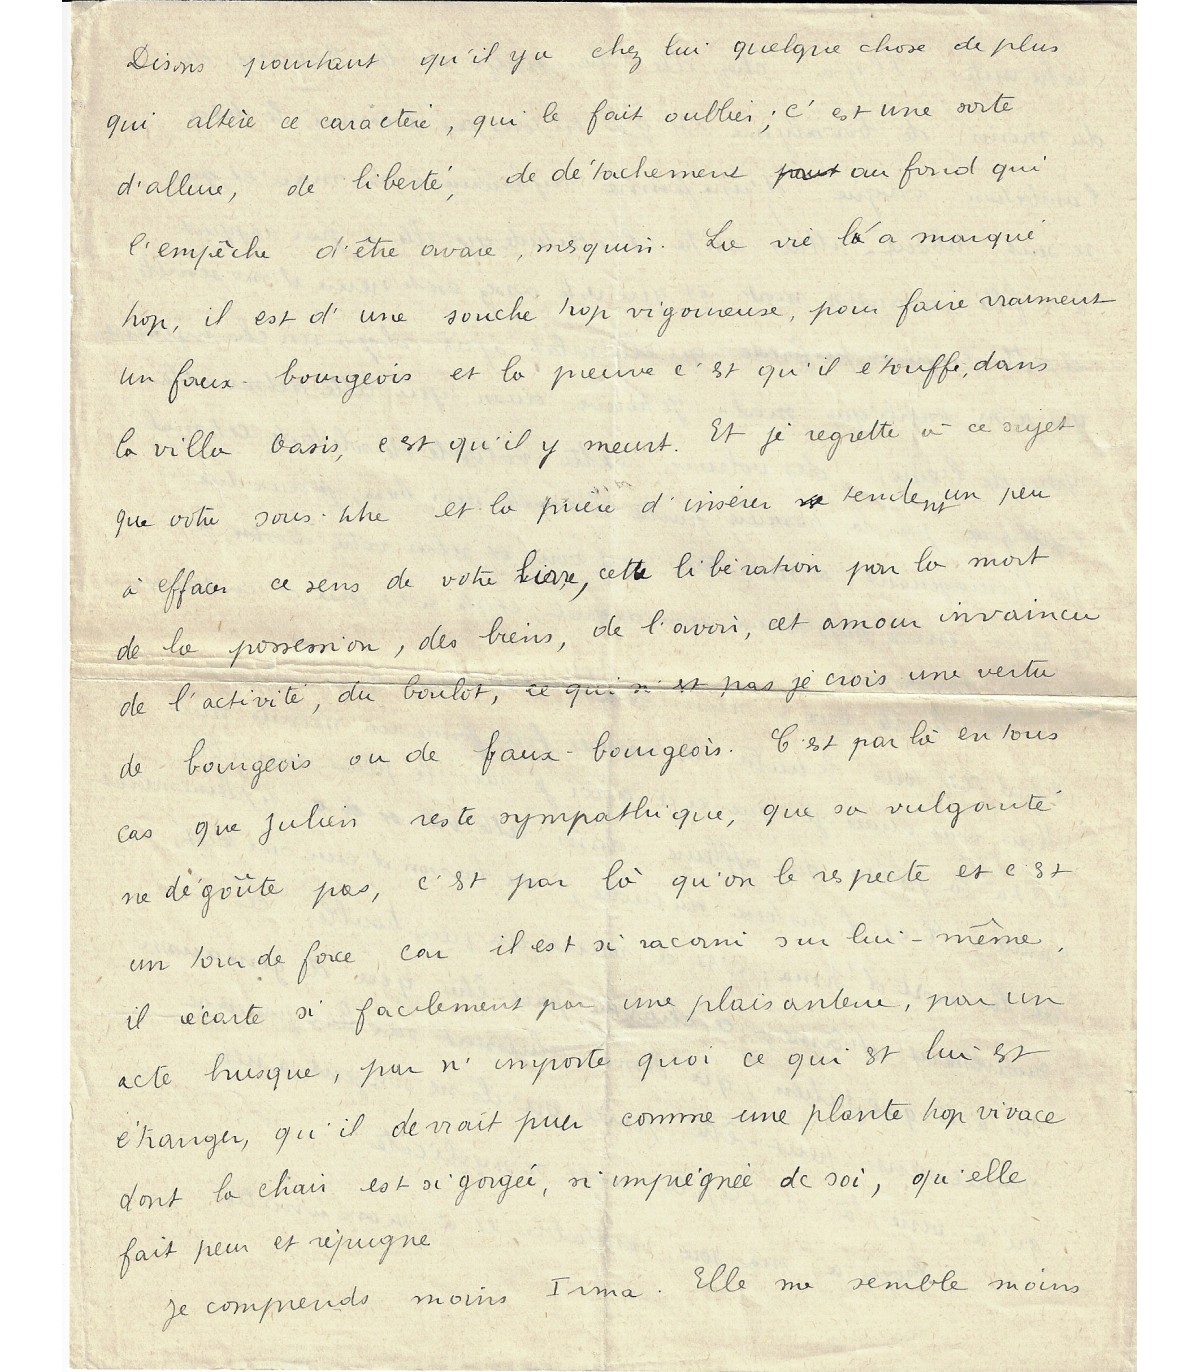 Disons pourtant qu'il y a chez lui quelque chose de plus
qui altère ce caractère, qui le fait oublier ; c'est une sorte
d'allure, de liberté, de détachement au fond qui
l'empêche d'être avare, mesquin. La vie l'a marqué
trop, il est d'une souche trop vigoureuse, pour faire vraiment
un faux-bourgeois et la preuve c'est qu'il étouffe, dans
la villa Oasis, c'est qu'il y meurt. Et je regrette à ce sujet
que votre sous-titre et la prière d'insérer tendent un peu
à effacer ce sens de votre livre, cette libération par la mort
de la possession, des biens, de l'avoir, cet amour invaincu
de l'activité, du boulot, ce qui n'est pas je crois une vertu
de bourgeois ou de faux-bourgeois. C'est par là en tous
cas que Julien reste sympathique, que sa vulgarité
ne dégoûte pas, c'est par là qu'on le respecte et c'est
un tour de force car il est si racorni sur lui-même,
il écarte si facilement par une plaisanterie, par un
acte brusque, par n'importe quoi ce qui est lui est
étranger, qu'il devrait puer comme une plante trop vivace
dont la chair est si gorgée, si imprégnée de soi, qu'elle
fait peur et répugne
Je comprends moins Irma. Elle me semble moins